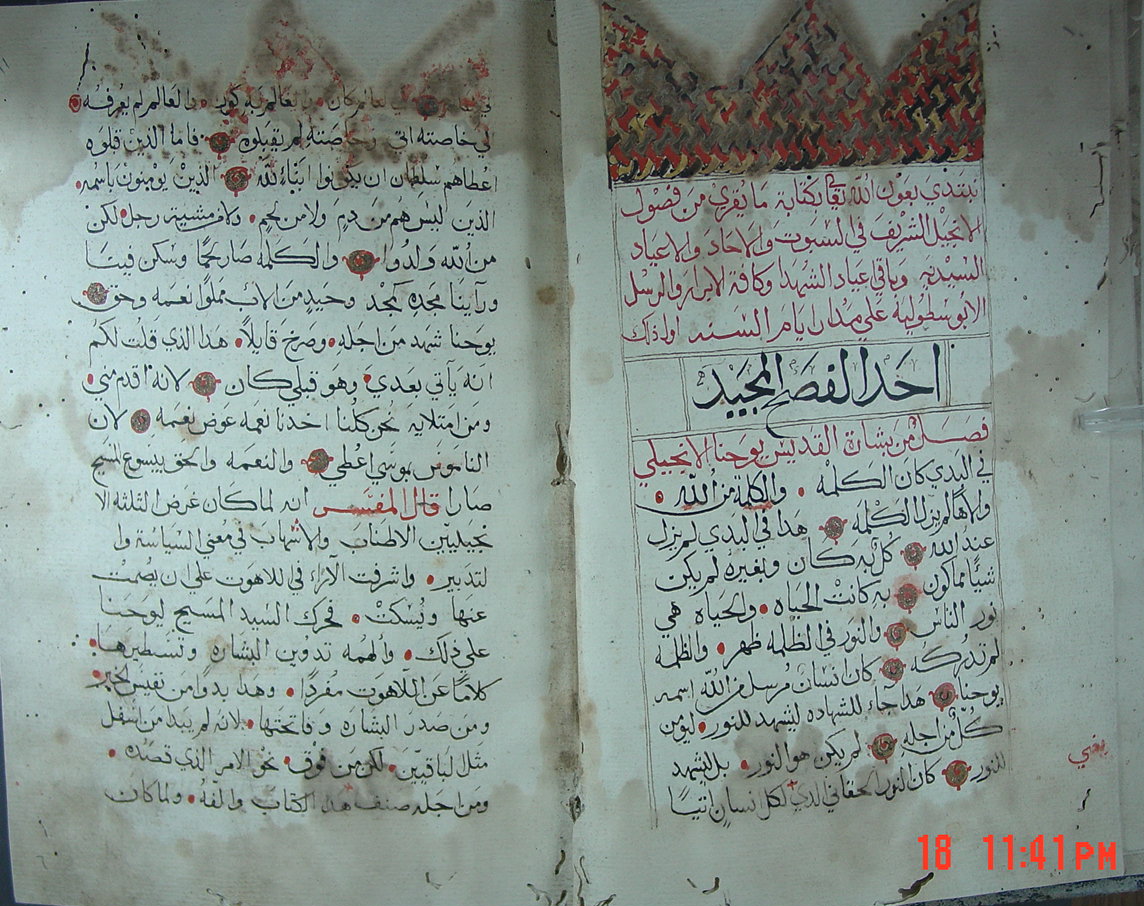 نبتدي بعون الله تعالى بكتابة ما يقري من فصول
الانجيل الشريف في السبوت والاحاد والاعياد
السيديه وباقي عياد الشهدا وكافة الابرار والرسل
الابوسطوليه علي مدار ايام السنه اولا ذلك
احد الفصح المجيد
فصل من بشارة القديس يوحنا الانجيلي
في البدي كان الكلمه والكلمة من الله
والاها لم يزل الكلمه هذا في البدي لم يزل
عند الله كل به كان وبغيره لم يكن
شيا مما كون به كانت الحياه والحياه هي
نور الناس والنور في الظلمه ظهر والظلمه
لم تدركه كان انسان مرسل من الله اسمه
يوحنا هدا جاء للشهاده ليشهد للنور ليومن
كل من اجله لم يكن هو النور بل ليشهد
للنور كان النور الحقاني الدي لكل انسان اتيا
في العالم كان والعالم به كون والعالم لم يعرفه
لي خاصته اتى وخاصته لم يقبلوه فاما الذين قبلوه
اعطاهم سلطان ان يكونوا ابناء لله الذين يومنون باسمه
الذين ليس هم من دم ولا من لحم ولا من مشية رجل لكن
من الله ولدوا والكلمه صار لحما وسكن فينا
وراينا مجده كمجد وحيد من الاب مملوا نعمه وحق
يوحنا شهد من اجله وصرخ قايلا هدا الذي قلت لكم
انه ياتي بعدي وهو قبلي كان لانه اقدم مني
ومن امتلايه نحن كلنا اخدنا نعمه عوض نعمه لان
الناموس بموسي اعطي والنعمه والحق بيسوع المسيح
صارا قال المفسر انه لما كان غرض الثلثه الا
نجيليين الاطناب والاسهاب في معني السياسة وا
لتدبير واشرفت الآراء في اللاهوت علي ان يصمت
عنها ويسكت فحرك السيد المسيح ليوحنا
علي ذلك والهمه تدوين البشاره وتسطيرها
كلاما عن اللاهوت مفردا وهدا يبدوا من نفيس الخبر
ومن صدر البشاره وفاتحتها لانه لم يبدا من اسفل
مثل الباقيين لكن من فوق نحو الامر الذي قصده
ومن اجله صنف هدا الكتاب والفه ولما كان
18 11:41 PM